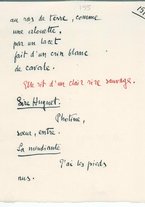 au ras de terre, comme
une alouette.
par un lacet
fait d'un crin blanc
de cavale.
Elle rit d'un clair rire sauvage.
Sire Huguet.
Photine,
sœur, entre.
La mendiante
J'ai les pieds
nus.